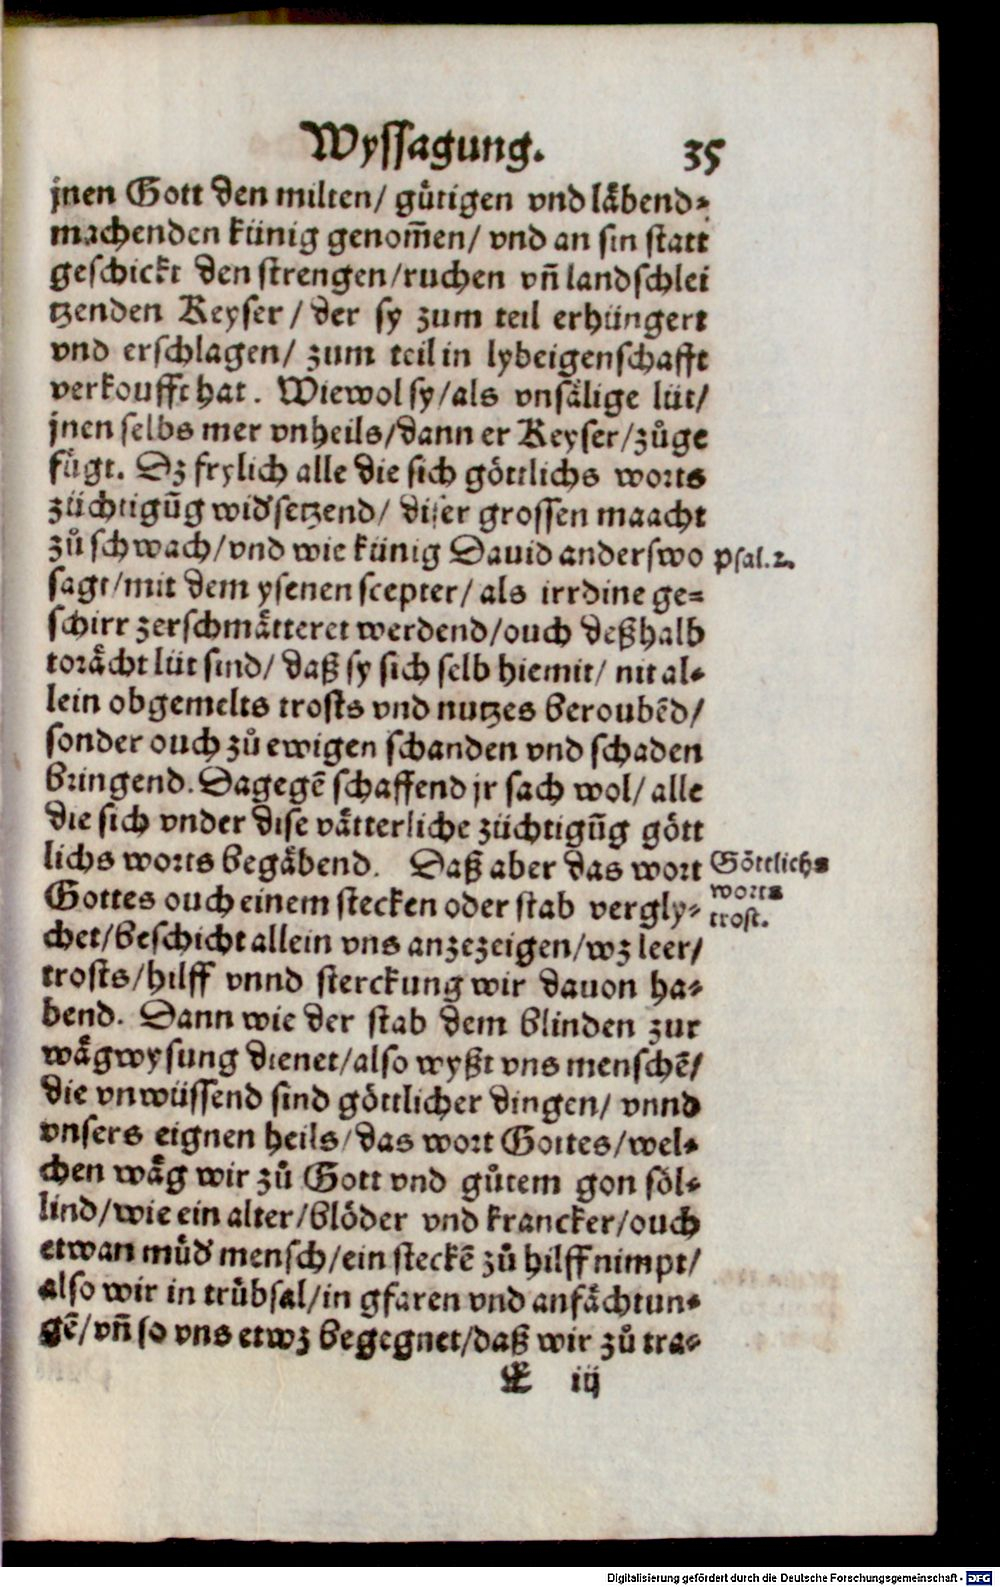 Wyssagung. 35
jnen Gott den milten/ gütigen vnd läbend⸗
machenden künig genom̃en/ vnd an sin statt
geschickt den strengen/ruchen vñ landschlei
tzenden Keyser/ der sy zum teil erhüngert
vnd erschlagen/ zum teil in lybeigenschafft
verkoufft hat. Wiewol sy/als vnsälige lüt/
jnen selbs mer vnheils/dann er Keyser/zůge
fügt. Dz frylich alle die sich göttlichs worts
züchtigũg wid'setzend/ diser grossen maacht
zů schwach/vnd wie künig Dauid anderswo
Psal.2.
sagt/mit dem ysenen scepter/ als irrdine ge⸗
schirr zerschmätteret werdend/ouch deßhalb
torächt lüt sind/ daß sy sich selb hiemit/ nit al⸗
lein obgemelts trosts vnd nutzes beroubẽd/
sonder ouch zů ewigen schanden vnd schaden
bringend. Dagegẽ schaffend jr sach wol/ alle
die sich vnder dise vätterliche züchtigũg gött
lichs worts begäbend. Daß aber das wort
Göttlichs
worts
trost.
Gottes ouch einem stecken oder stab vergly⸗
chet/beschicht allein vns anzezeigen/wz leer/
trosts/hilff vnnd sterckung wir dauon ha⸗
bend. Dann wie der stab dem blinden zur
wägwysung dienet/also wyßt vns menschẽ/
die vnwüssend sind göttlicher dingen/ vnnd
vnsers eignen heils/das wort Gottes/wel⸗
chen wäg wir zů Gott vnd gůtem gon söl⸗
lind/wie ein alter/blöder vnd krancker/ouch
etwan müd' mensch/ein steckẽ zů hilff nimpt/
also wir in trübsal/in gfaren vnd anfächtun⸗
gẽ/vñ so vns etwz begegnet/daß wir zů tra⸗
E iij
Digitalisierung gefördert durch die Deutsche Forschungsgemeinschaft - DFG